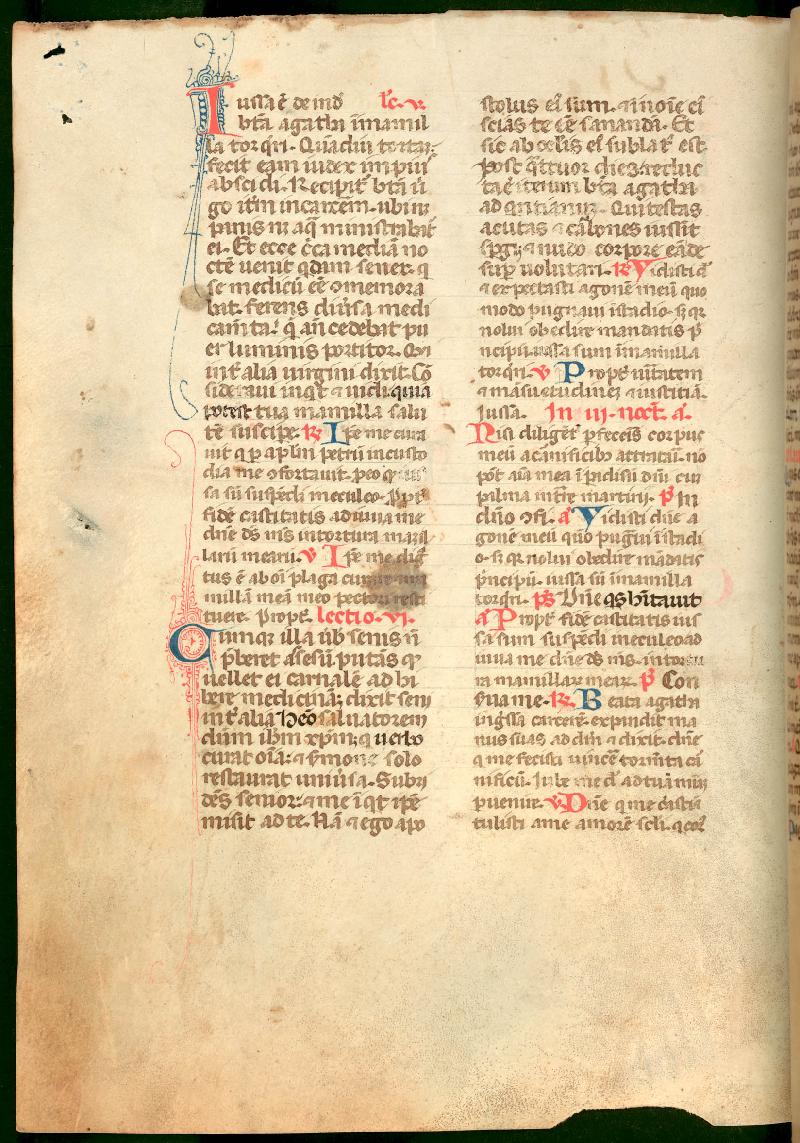 Iussa ē deinđ lc. v.
btā agatha īmamil
la torq̄ri. Quādiu tortā
fecit eam iudex impiuſ
abscidi. Recipit btā uͥ
go itm incarcem. ubi ne
panis nͣ aq̄ ministrabat
ei. Et ecce c̄ca mediā no
ctē uenit qdam senex. q
se medicū eē ꝯmemora
bat. ferens diūsa medi
camta. q̄ an̄cedebat pu
er luminis portitor. Qui
int̄ alia uirgini dixit. Cō
sideraui inqͭ ⁊ uidi. quia
potest tua mamilla salu
tē suscipe. ℟ Ipe me cura
uit q p aplm petrū incusto
dia me ꝯfortauit. peo
sa sū suspēdi meculeo. ppͭ
fidē castitatis adiuua me
dn̄e ds ms intortura mam
larū mearū. ℣ Ipe me dig
tus ē aboī plaga curare
millā meā meo pectori resti
tuere. Propt̄. lectio. vi.
Cumq; illa ūb senis n̄
p̄beret asēsū putās q
uellet ei carnalē adhi
bere medicinā; dixit seni
int̄ alia. Heō saluatorem
dūm ihm xp̄m; q uerbo
curat oīa; ⁊ smone solo
restaurat uniūsa. Subri
dēs senior; ⁊ me īqt ipe
misit ad te. Nā ⁊ ego apo
stolus eī sum. ⁊ inoīe eī
scias te eē sanandā. Et
sic ab oclis eī sublatͧ est.
post q̄ttuor dies. reduc
ta ē iterum btā agatha
ad Quitestas
acutas ⁊ cābones iussit
spgi; ⁊ nudo corpore eāde
suꝑ uolutari. ℟ Vidisti d
⁊ expectasti agonē meū quo
modo pugnaui īstadio. s; qr
nolui obedire mandatis p
ncipū. iussa sum īmamilla
torq̄ri. ℣ Propt̄ uītatem
⁊ mansuetudinē; ⁊ iustitiā.
Iussa. In iij. noct. a.
Nisi diligēt pfeceis corpus
meū acarnificibz attractū. no
pōt aīa mea ī padisū dn̄i cū
palma intͬre martirij. p̄ In
dn̄o ꝯfi. a Vidisti dn̄e a
gonē meū quo pugn̄i īstadi
o. s; qr nolui obedire mādatis
p̄ncipū. iussa sū īmamilla
torq̄ri. ps Dn̄e qs hītauit
a Propt̄ fidē castitatis ius
sa sum suspēdi meculeo. ad
iuua me dn̄e ds ms. intortu
ra mamillarum mearū. p̄ Con
serua me. ℟ Beata agatha
ingssa carcerē. expandit ma
nus suas ad dm̄ ⁊ dixit. dn̄e
q me fecisti uincē tormta car
nificū. Iube me dn̄ ad tuā miā
peruenire. ℣ Dn̄e q me custo
tulisti a me amorē scli. q cor